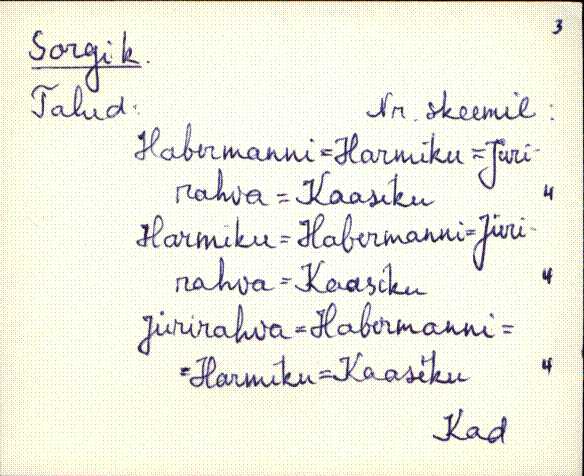 3
Sorgi k.
Talud:
Nr. skeemil:
Habermanni=Harmiku=Jüri-
rahva=Kaasiku 4
Harmiku=Habermanni=Jüri-
rahva=Kaasiku 4
Jürirahva=Habermanni=
=Harmiku=Kaasiku 4
Kad